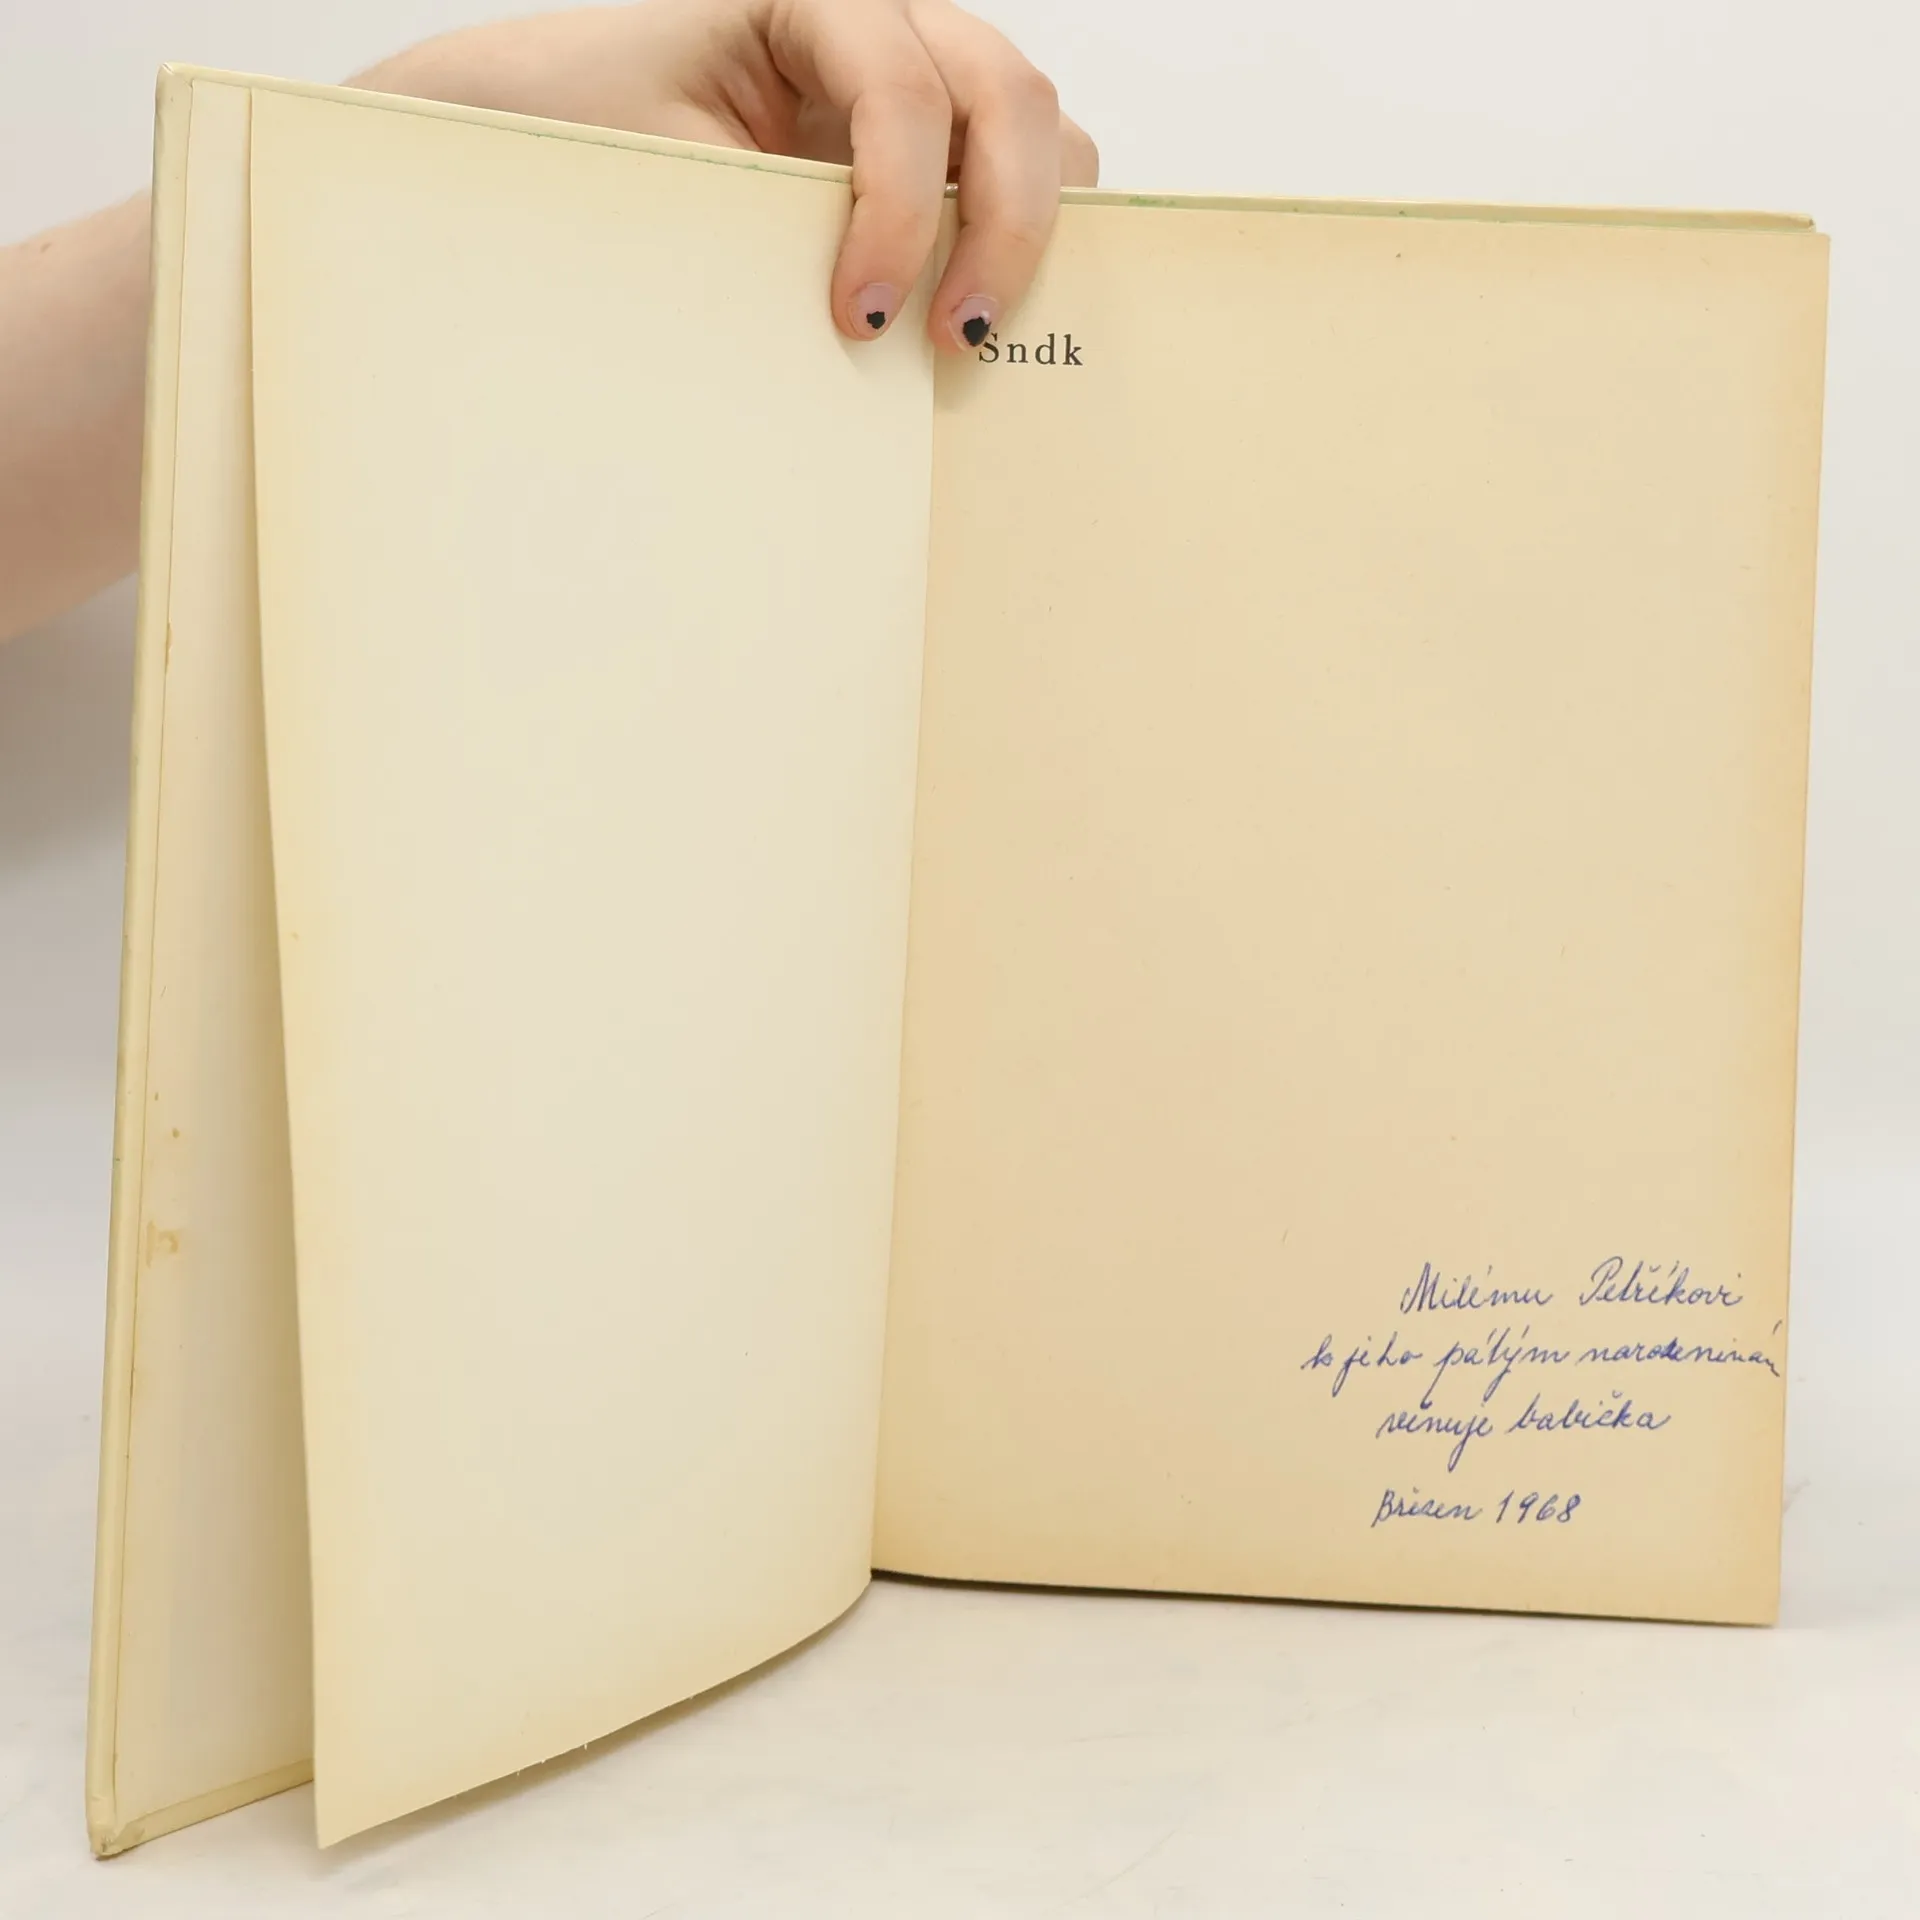 Sndk
Milému Petříkovi
k jeho pátým narozeninám
věnuje babička
Březen 1968